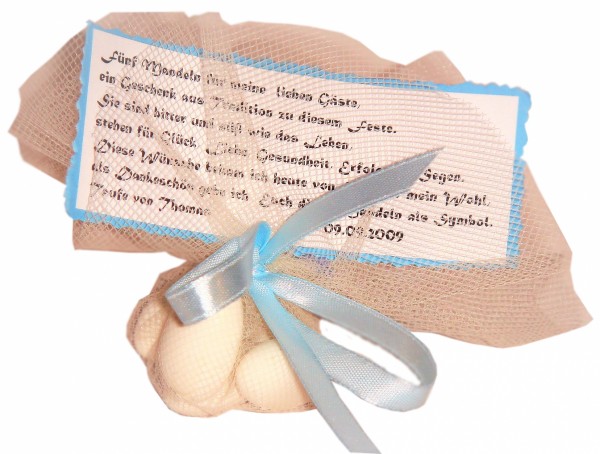 Fünf Mandeln für meine lieben Gäste,
ein Geschenk aus Tradition zu diesem Feste.
Sie sind bitter und süß wie das Leben,
stehen für Glück, Liebe, Gesundheit, Erfolg Segen.
Diese Wünsche bekam ich heute von mein Wohl.
als Dankeschön gebe ich Euch Mandeln als Symbol.
Taufe von Thomas
09.09.2009